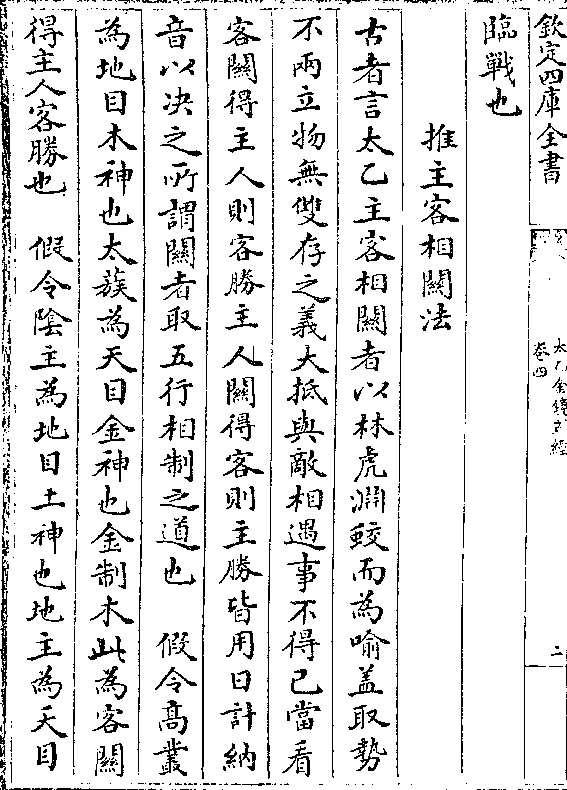 欽定四庫全書
太乙金鏡式經
卷四
二
臨戰也
推主客相關法
古者言太乙主客相關者以林虎淵蛟而為喻盖取勢
不兩立物無雙存之義大抵與敵相遇事不得已當看
客關得主人則客勝主人關得客則主勝皆用日計納
音以决之所謂關者取五行相制之道也　假令髙叢
為地目木神也太蔟為天目金神也金制木此為客關
得主人客勝也　假令陰主為地目土神也地主為天目